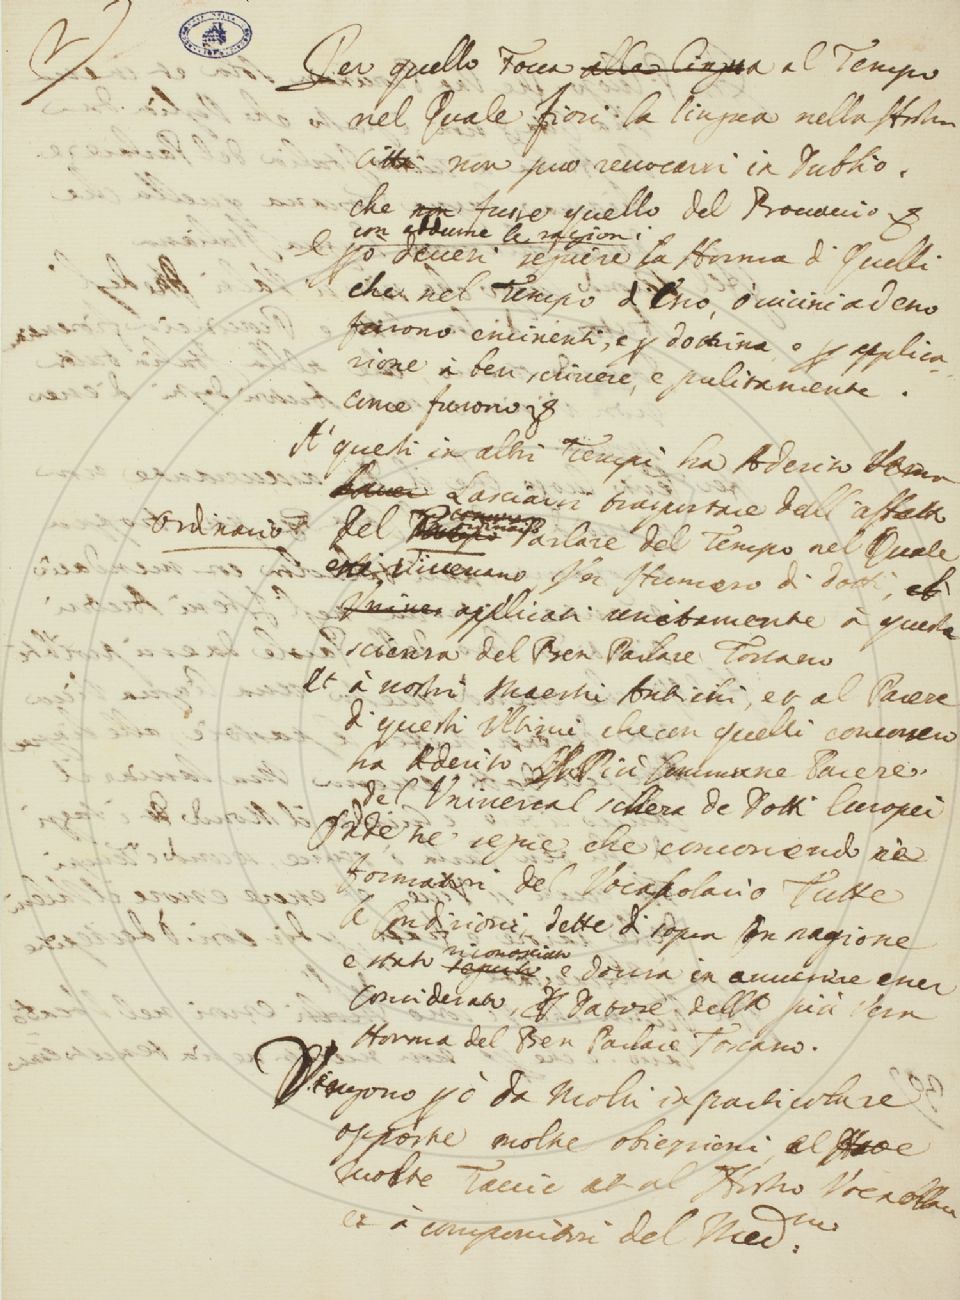 Per quello Tocca alla lingua al Tempo
nel Quale fiorì la lingua nella Nostra
città non può revocarsi in Dubbio.
che non fusse quello del Boccaccio &
con addurne le ragioni
e però doversi seguire la Norma di Quelli
che nel Tempo d'Esso, ò vicini ad esso
furono eminenti, e per dottrina e per applica-
zione à ben scrivere, e pulitamente.
come furono &
A' questi in altri Tempi ha Aderito
Lasciarsi trasportare dall'affetto
comune
ordinario
Ordinario
del Parlare del Tempo nel Quale
Vivevano Un Numero di dotti, et
applicati unitamente à questa
scienza del Ben Parlare Toscano
Et à nostri Maestri Antichi, et al Parere
di questi Ultimi che con quelli concorsero
ha Aderito Il Più Commune Parere
del Universal schiera de Dotti Europei
Onde ne segue che concorrendo ne
formatori del Vocabolario Tutte
le Condizioni dette di sopra Con ragione
riconosciuto
è stato seguito, e dovrà in avvenire esser
Considerato Il Datore della più Vera
Norma del Ben Parlare Toscano.
Vengono però da Molti in particolare
opposte molte obiezioni, e
Molte Taccie al Nostro Vocabolario
et à compositori del Med.mo